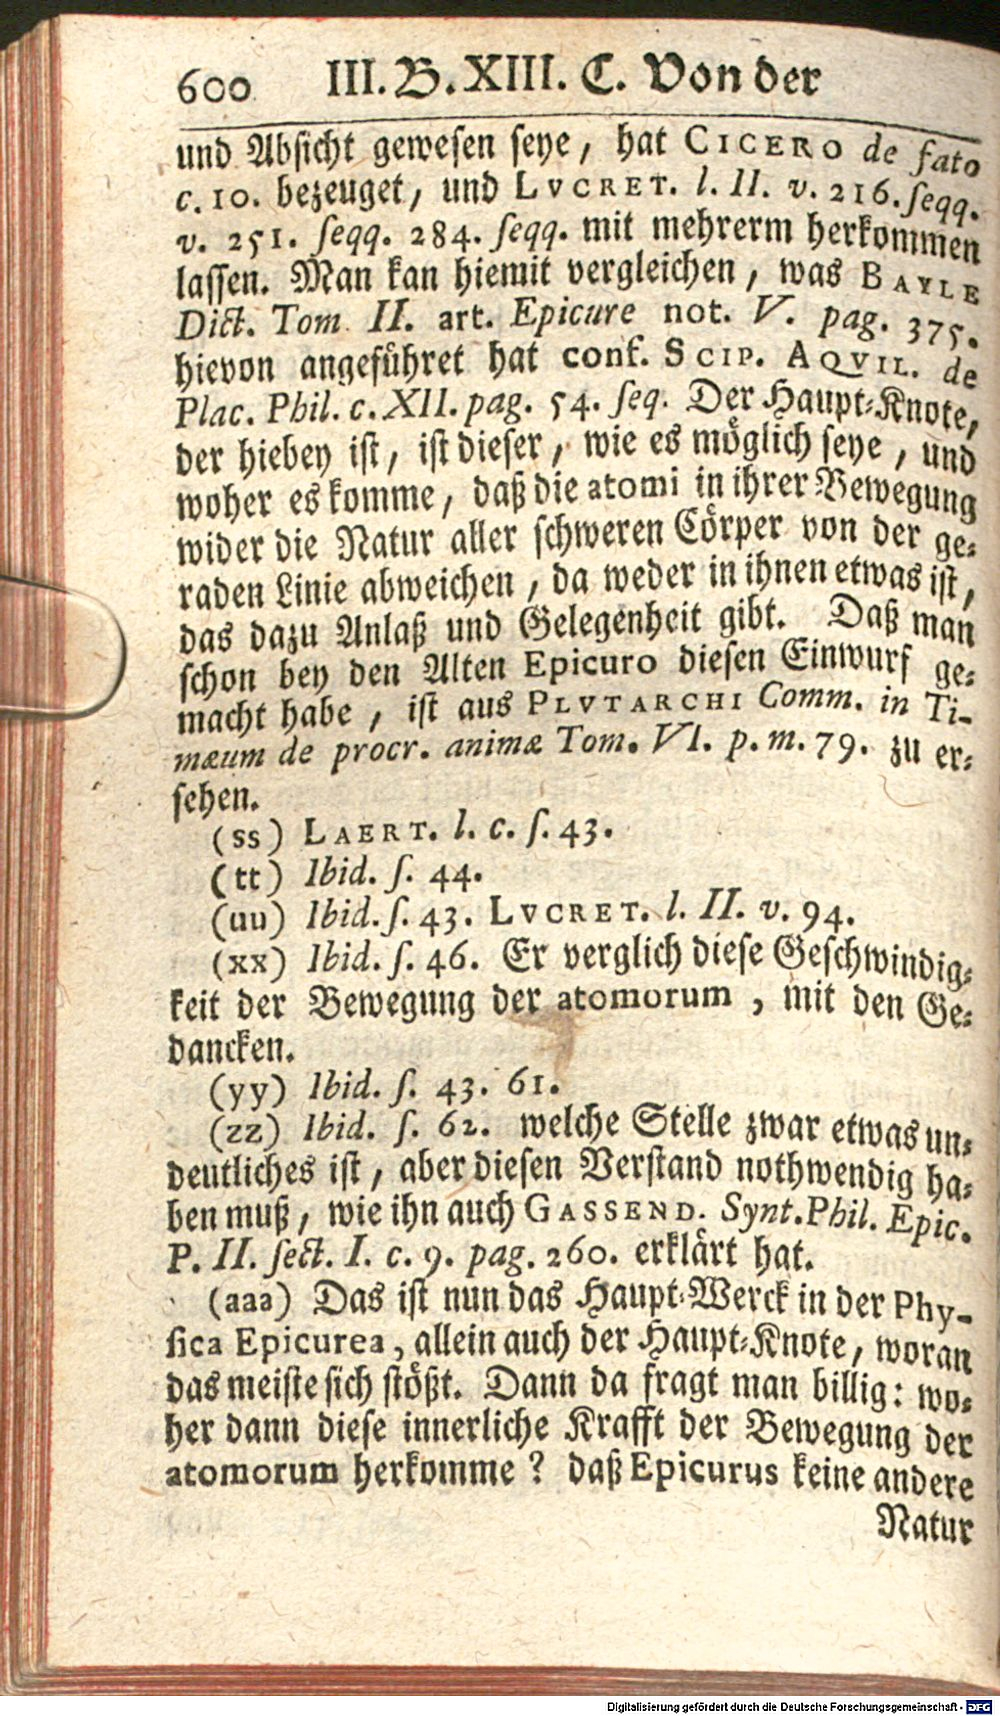 600 III. B. XIII. C. Von der
und Absicht gewesen seye, hat CICERO de fato
c. 10. bezeuget, und LVCRET. l. II. v. 216. seqq.
v. 251. seqq. 284. seqq. mit mehrerm herkommen
lassen. Man kan hiemit vergleichen, was BAYLE
Dict. Tom. II. art. Epicure not. V. pag. 375.
hievon angeführet hat conf. SCIP. AQVIL. de
Plac. Phil. c. XII. pag. 54. seq. Der Haupt-Knote,
der hiebey ist, ist dieser, wie es möglich seye, und
woher es komme, daß die atomi in ihrer Bewegung
wider die Natur aller schweren Cörper von der ge-
raden Linie abweichen, da weder in ihnen etwas ist,
das dazu Anlaß und Gelegenheit gibt. Daß man
schon bey den Alten Epicuro diesen Einwurf ge-
macht habe, ist aus PLVTARCHI Comm. in Ti-
mæum de procr. animæ Tom. VI. p. m. 79. zu er-
sehen.
(ss) LAERT. l. c. s. 43.
(tt) Ibid. s. 44.
(uu) Ibid. s. 43. LVCRET. l. II. v. 94.
(xx) Ibid. s. 46. Er verglich diese Geschwindig-
keit der Bewegung der atomorum, mit den Ge-
dancken.
(yy) Ibid. s. 43. 61.
(zz) Ibid. s. 62. welche Stelle zwar etwas un-
deutliches ist, aber diesen Verstand nothwendig ha-
ben muß, wie ihn auch GASSEND. Synt. Phil. Epic.
P. II. sect. I. c. 9. pag. 260. erklärt hat.
(aaa) Das ist nun das Haupt-Werck in der Phy-
sica Epicurea, allein auch der Haupt-Knote, woran
das meiste sich stößt. Dann da fragt man billig: wo-
her dann diese innerliche Krafft der Bewegung der
atomorum herkomme? daß Epicurus keine andere
Natur
Digitalisierung gefördert durch die Deutsche Forschungsgemeinschaft - DFG